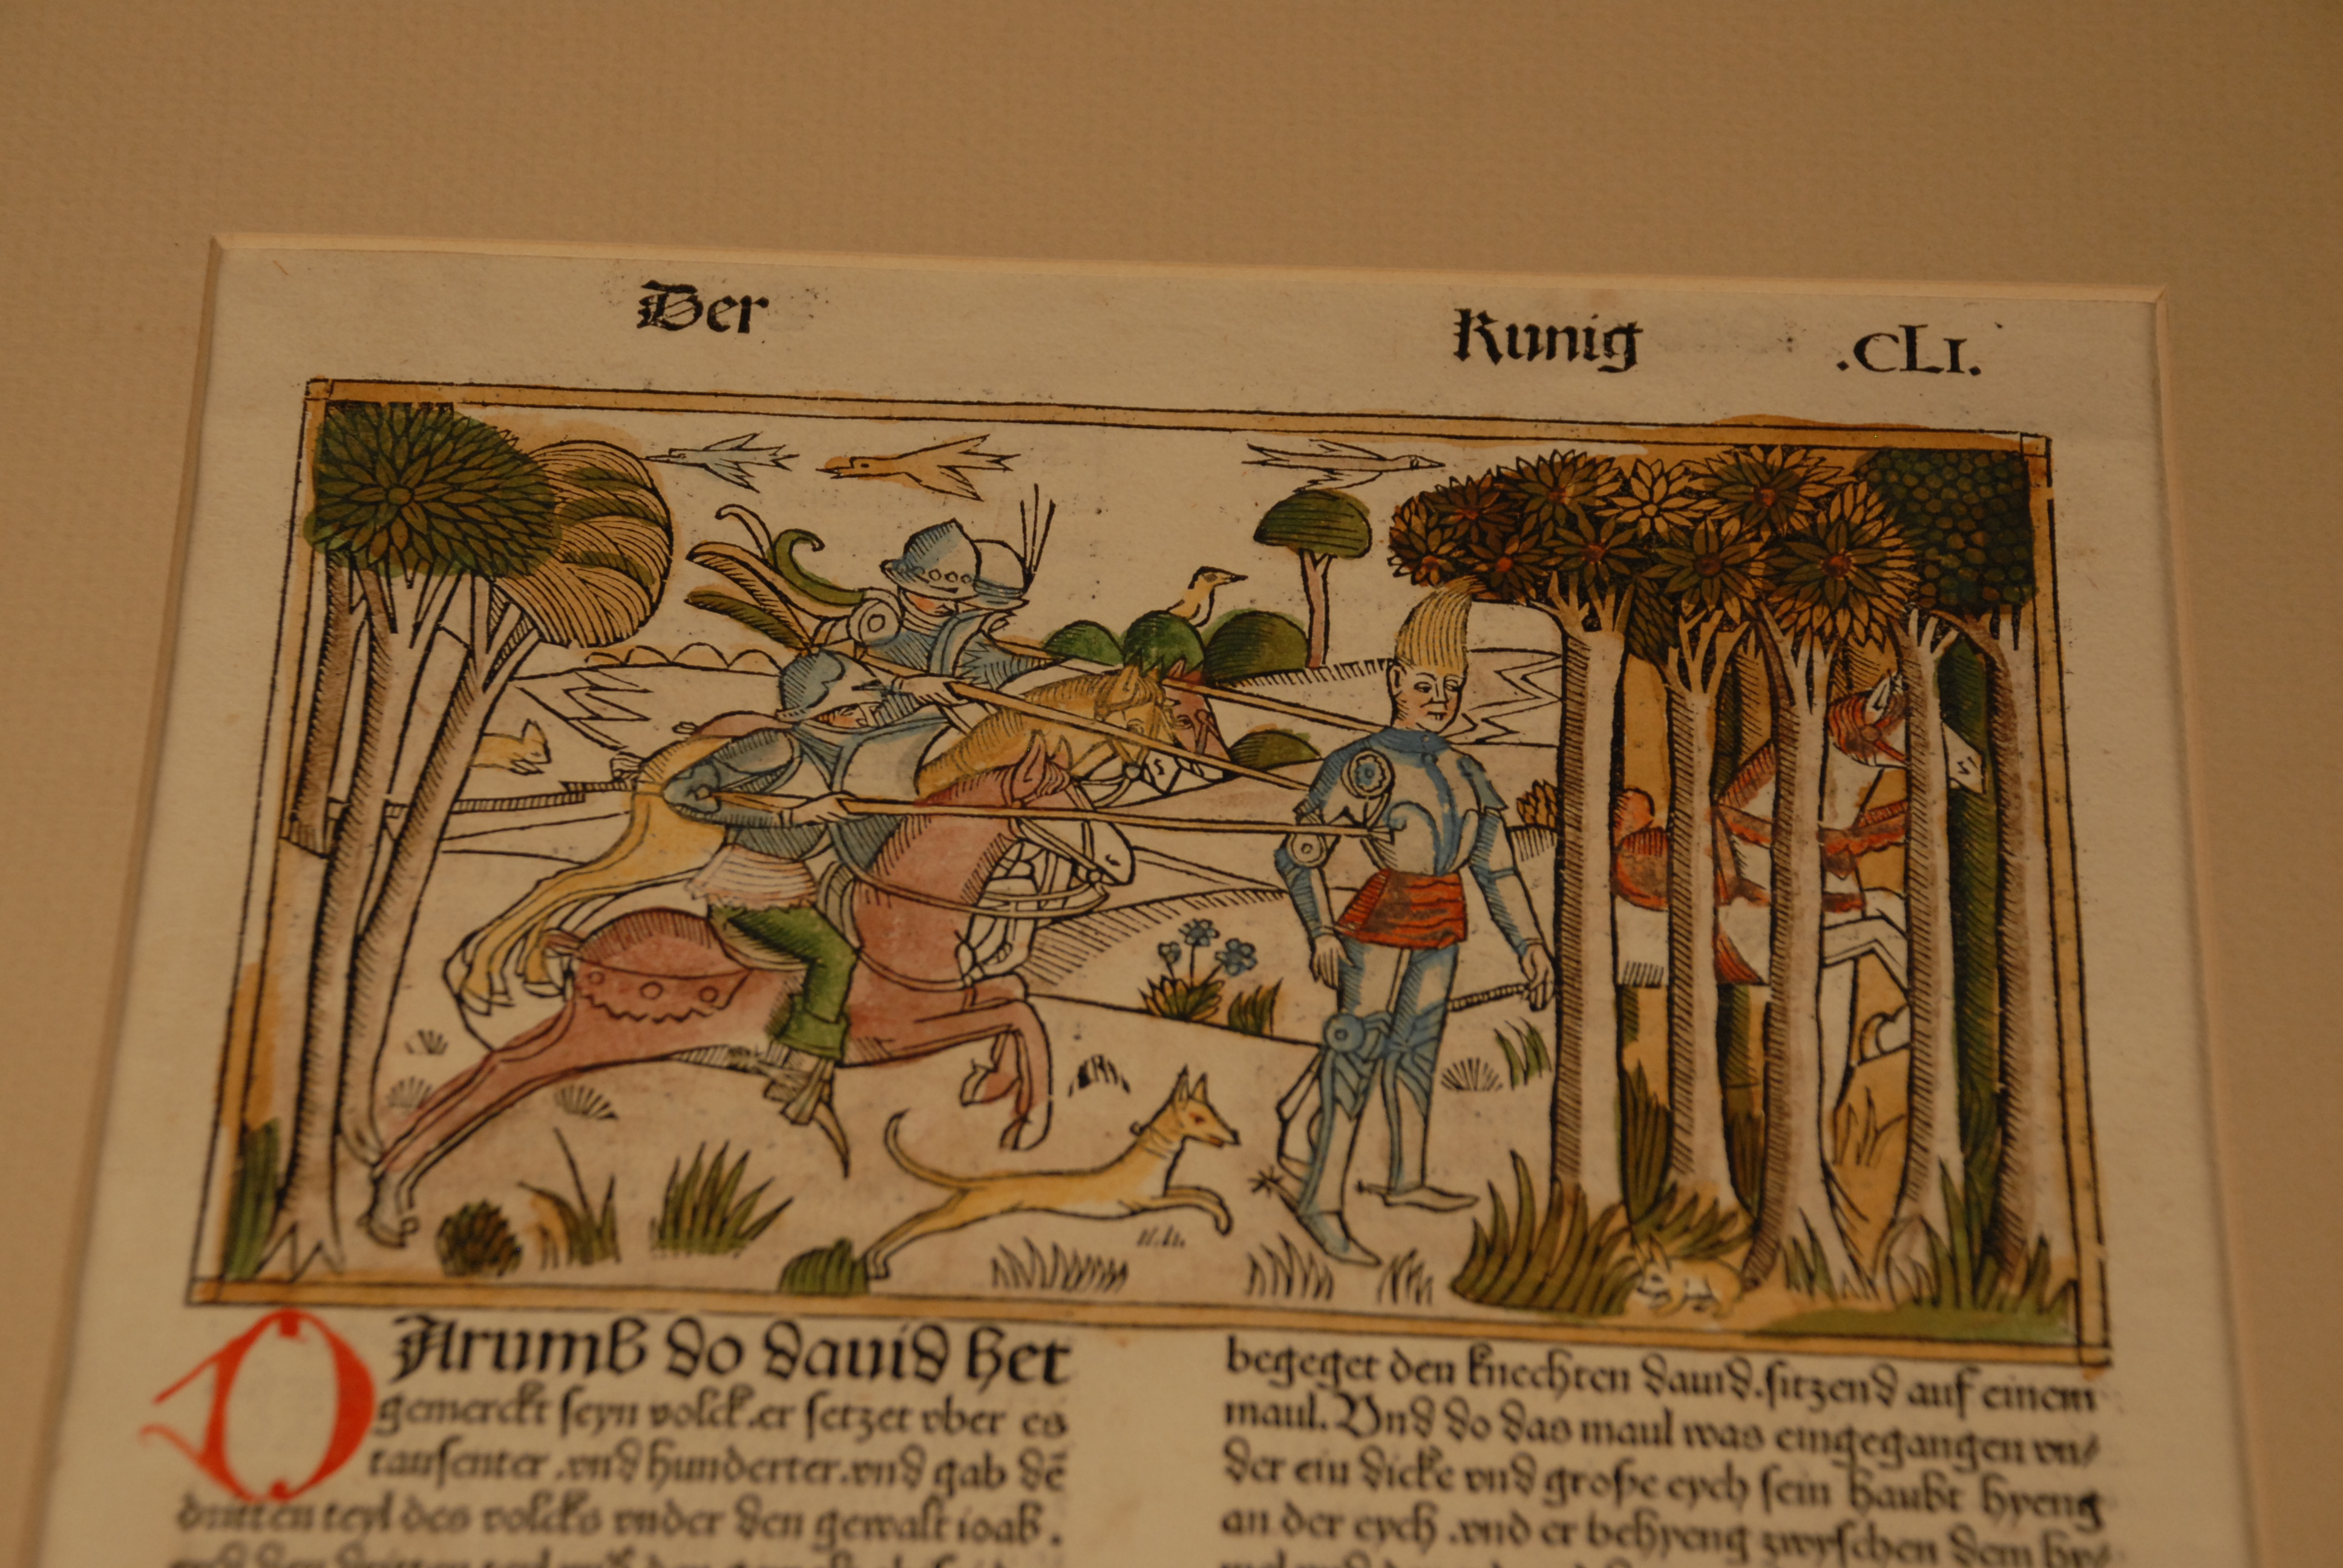 Der Kunig .CLI.
DArumb do dauid het
gemerckt seyn volck.er setzet vber es
tausenter .vnd hunderter.vnd gab dē
dritten teyl des volcks vnder den gewalt ioab.
begeget den knechten dauid.sitzend auf einem
maul. Vnd do das maul was eingegangen vn/
der ein dicke vnd große eych sein haubt hyeng
an der eych .vnd er behyeng zwyschen dem hy/